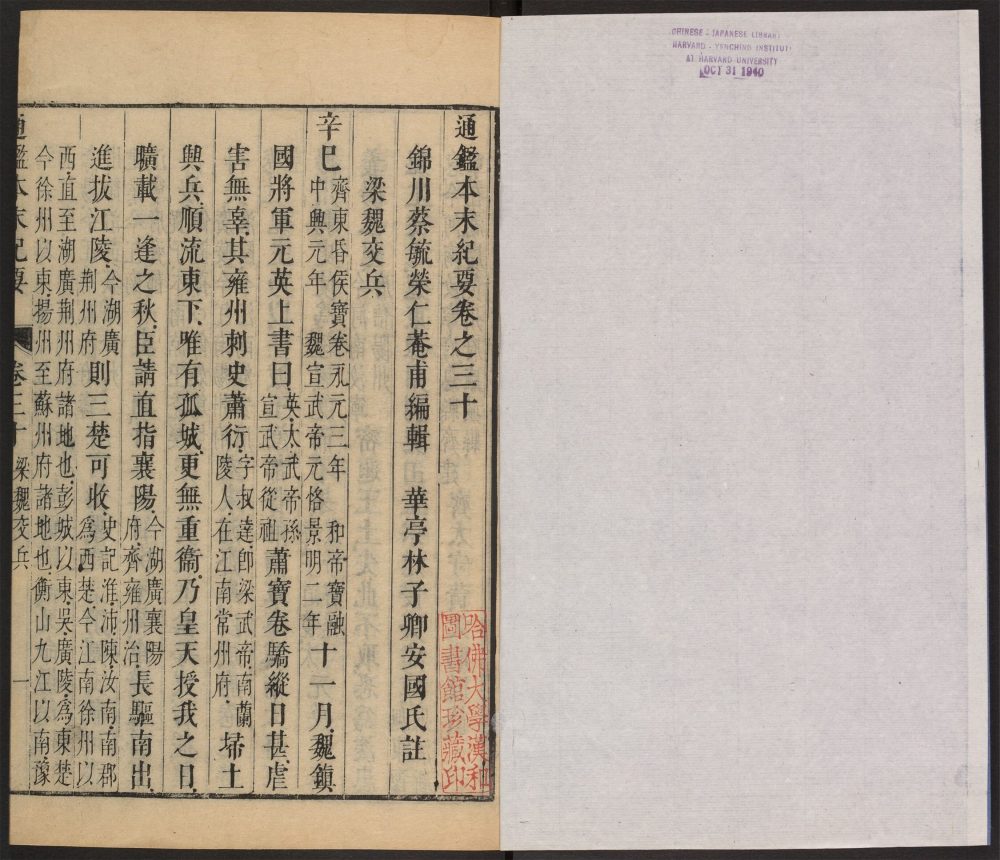 CHINESE - JAPANESE LIBRARY
HARVARD - YENCHING INSTITUTE
AT HARVARD UNIVERSITY
OCT 31 1940
通鑑本末紀要卷之三十
錦川蔡毓榮仁菴甫編輯 華亭林子卿安國氏註
梁魏交兵
辛巳 齊東昏侯寶卷永元三年 和帝寶融
中興元年 魏宣武帝元恪景明二年 十一月魏鎮
國將軍元英上書曰 英太武帝孫
宣武帝從祖 蕭寶卷驕縱日甚虐
害無辜其雍州刺史蕭衍 字叔達卽梁武帝南蘭
陵人在江南常州府 埽土
興兵順流東下唯有孤城更無重衞乃皇天授我之日
曠載一逢之秋臣請直指襄陽 今湖廣襄陽
府齊雍州治 長驅南出
進拔江陵 今湖廣
荆州府 則三楚可收 史記淮沛陳汝南南郡
爲西楚今江南徐州以
西直至湖廣荆州府諸地也彭城以東吳廣陵爲東楚
今徐州以東揚州至蘇州府諸地也衡山九江以南豫
通鑑本末紀要 卷三十 梁魏交兵 一
哈佛大學漢和
圖書館珍藏印